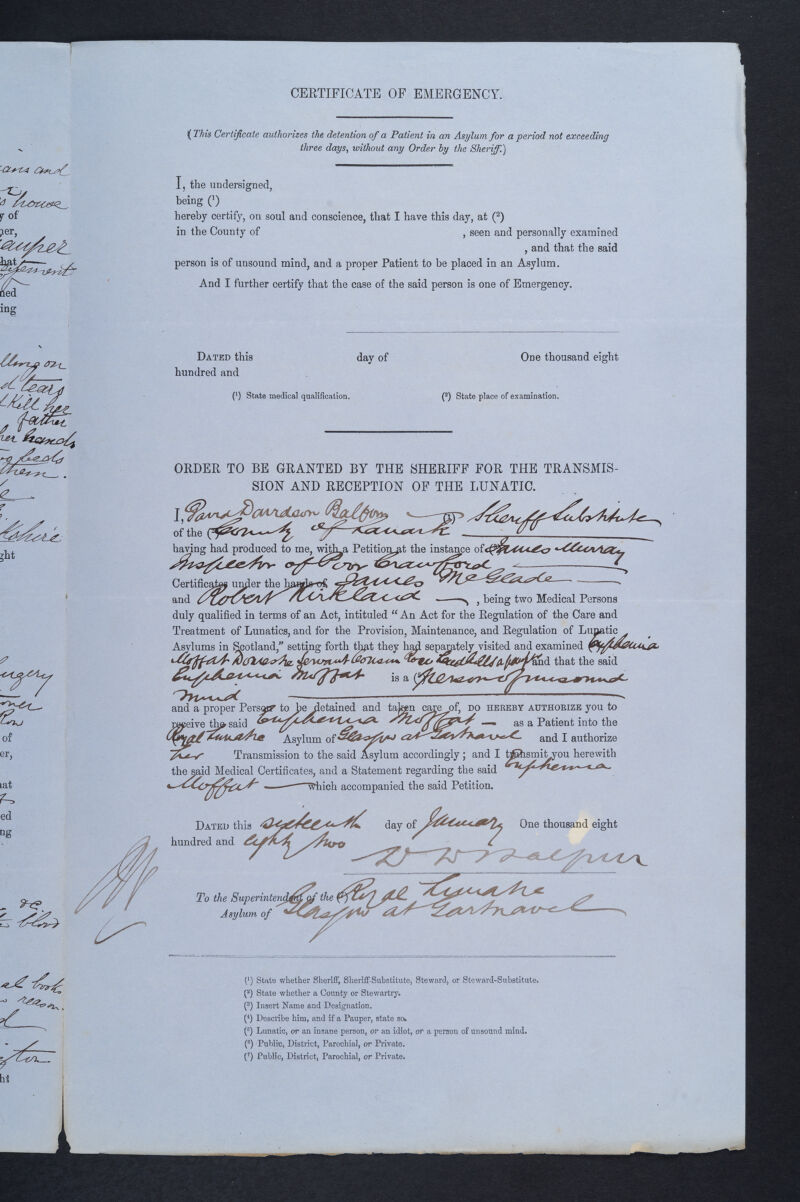 CERTIFICATE OF EMERGENCY.
(This Certificate authorizes the detention of a Patient in an Asylum for a period not exceeding
three days, without any Order by the Sheriff.)
I, the undersigned,
being (¹)
hereby certify, on soul and conscience, that I have this day, at (²)
in the County of , seen and personally examined
, and that the said
person is of unsound mind, and a proper Patient to be placed in an Asylum.
And I further certify that the case of the said person is one of Emergency.
DATED this day of One thousand eight
hundred and
(¹) State medical qualification. (²) State place of examination.
ORDER TO BE GRANTED BY THE SHERIFF FOR THE TRANSMIS-
SION AND RECEPTION OF THE LUNATIC.
I, David Davidson Balfour (¹) Sheriff Substitute
of the (²) County of Lanark
having had produced to me, with a Petition at the instance of (³) James Murray
Inspector of Poor Crawford
Certificates under the hands of James McGlade
and Robert Kirkland , being two Medical Persons
duly qualified in terms of an Act, intituled "An Act for the Regulation of the Care and
Treatment of Lunatics, and for the Provision, Maintenance, and Regulation of Lunatic
Asylums in Scotland," setting forth that they had separately visited and examined (⁴) Euphemia
Moffat Domestic Servant Leadhills a pauper and that the said
Euphemia Moffat is a (⁵) person of unsound
mind
and a proper Person to be detained and taken care of, DO HEREBY AUTHORIZE you to
receive the said Euphemia Moffat as a Patient into the
Royal Lunatic Asylum of Glasgow at Gartnavel and I authorize
her Transmission to the said Asylum accordingly; and I transmit you herewith
the said Medical Certificates, and a Statement regarding the said Euphemia
Moffat which accompanied the said Petition.
DATED this sixteenth day of January One thousand eight
hundred and eighty two
D D Balfour
To the Superintendent of the (⁷) Royal Lunatic
Asylum of Glasgow at Gartnavel
(¹) State whether Sheriff, Sheriff-Substitute, Steward, or Steward-Substitute.
(²) State whether a County or Stewartry.
(³) Insert Name and Designation.
(⁴) Describe him, and if a Pauper, state so.
(⁵) Lunatic, or an insane person, or an idiot, or a person of unsound mind.
(⁶) Public, District, Parochial, or Private.
(⁷) Public, District, Parochial, or Private.